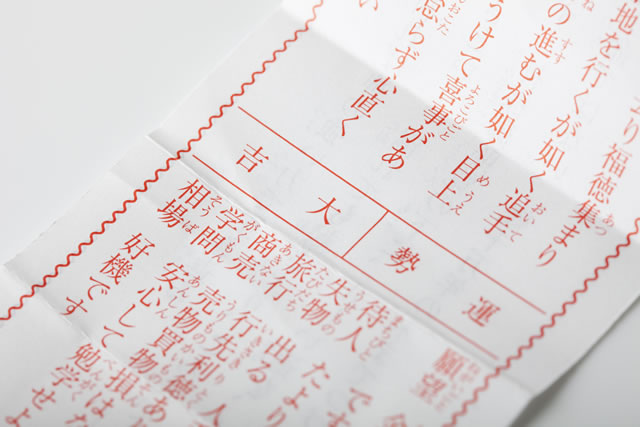 り福徳集まり
地を行くが如く追手
の進むが如く目上
うけて喜事があ
怠らず心直く
い
運勢
大吉
願望
待人 たより
失物 出る
旅行 行先利徳あ
商売 売物買物損はな
学問 安心して勉学せよ
相場 好機です